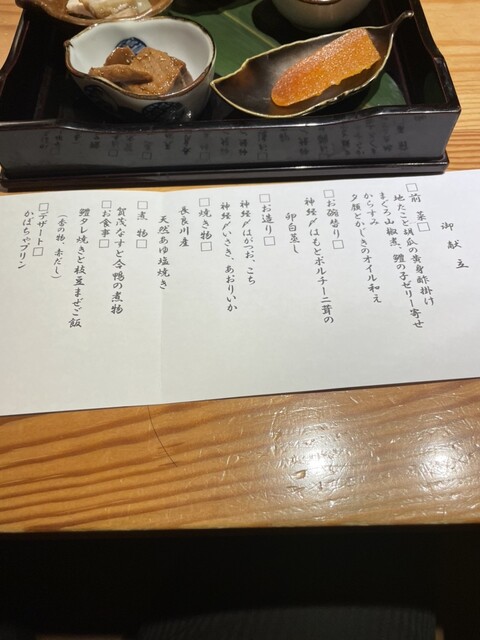 御献立
□前菜□
地たこと胡瓜の黄身酢掛け
まぐろ山椒煮、鱧の子ゼリー寄せ
からすみ
夕顔とかしきのオイル和え
□お碗替り□
神経〆はもとポルチーニ茸の
卵白蒸し
□お造り□
神経〆はがつお、こち
神経〆いさき、あおりいか
□焼き物□
長良川産
天然あゆ塩焼き
□煮物□
賀茂なすと合鴨の煮物
□お食事□
鱧タレ焼きと枝豆まぜご飯
(香の物、赤だし)
□デザート□
かぼちゃプリン